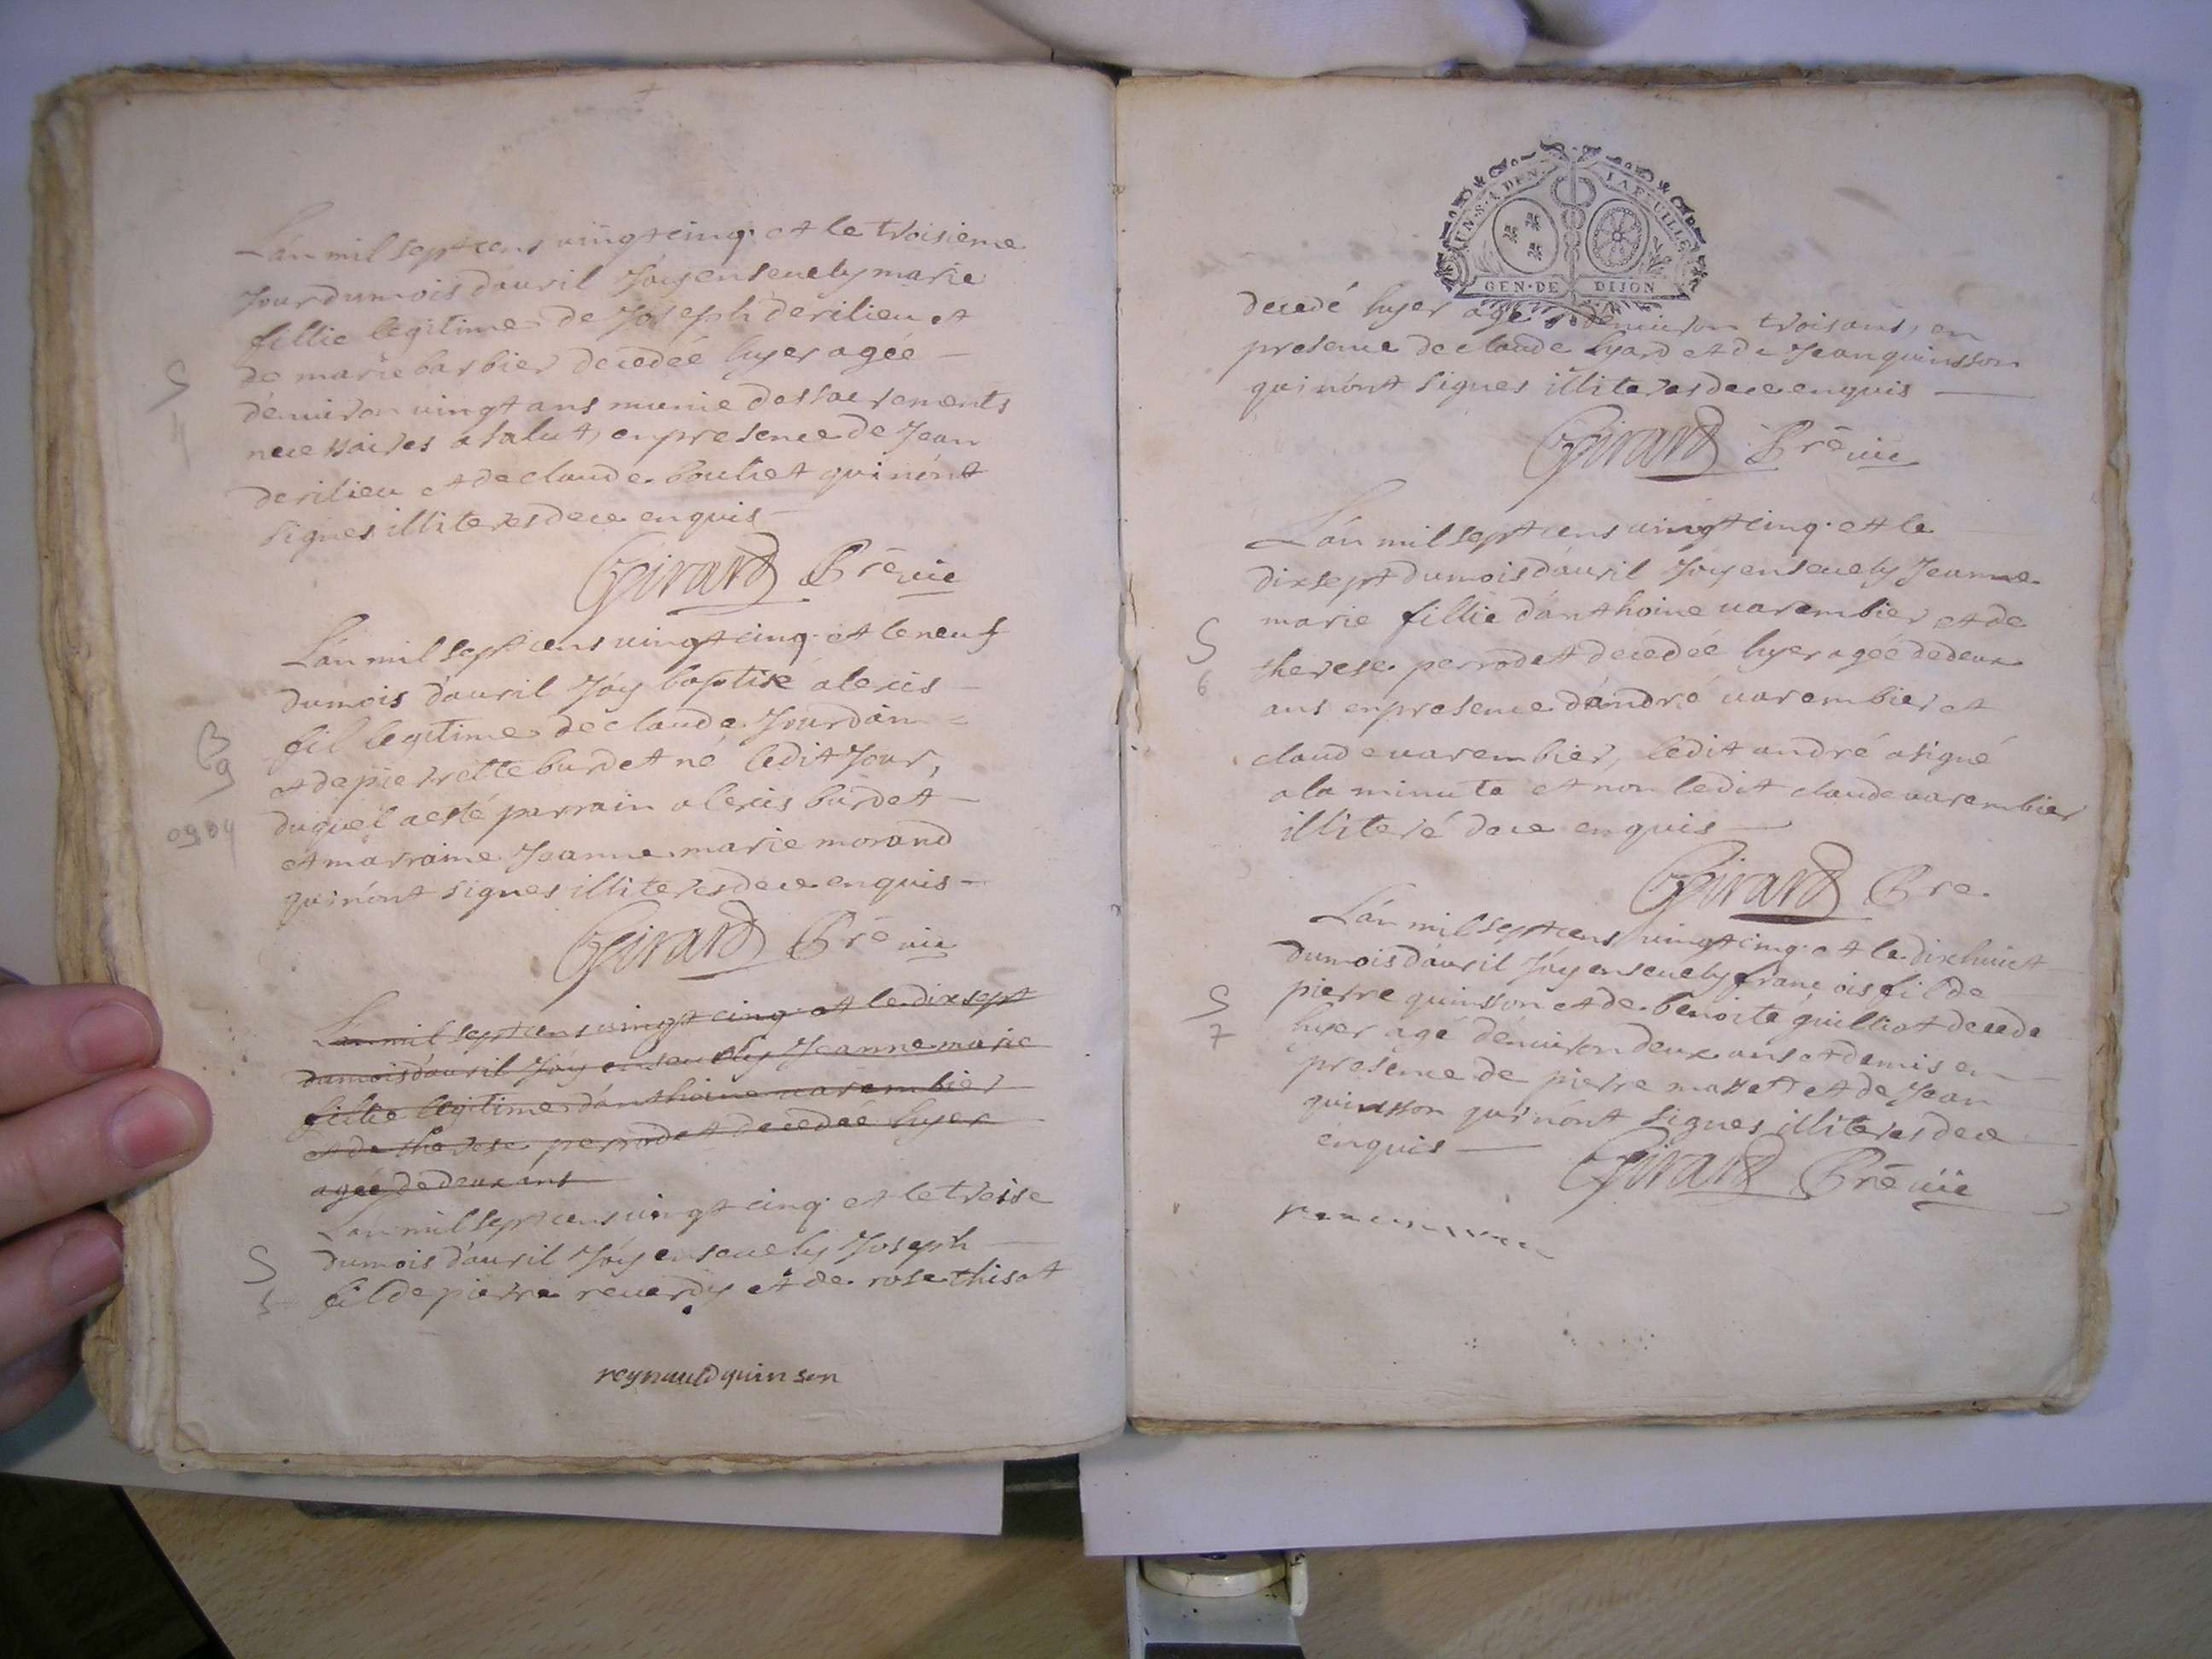 L'an mil sept cens vingt cinq et le troisieme
Jour du mois d'auril J'ay enseuely marie
fillie legitime de Joseph derilieu et
de marie barbier decedée hyer agée
d'enuiron vingt ans munie des sacrements
necessaires a salut, en presence de Jean
derilieu et de claude bouliet qui n'ont
signes illiteres de ce enquis
S
4
Girard Prê vic
L'an mil sept cens vingt cinq et le neuf
du mois d'auril J'ay baptisé alexis
fil legitime de claude Jourdan
et de pierrette burdet né ledit Jour,
duquel a esté parrain alexis burdet
et marraine Jeanne marie morand
qui n'ont signes illiteres de ce enquis
B
9
09.04
Girard Prê vic
L'an mil sept cens vingt cinq et le dix sept
du mois d'auril J'ay enseuely Jeanne marie
fillie legitime d'anthoine uarembier
et de therese perrodet decedée hyer
agée de deux ans
L'an mil sept cens vingt cinq et le treise
du mois d'auril J'ay enseuely Joseph
fil de pierre reuerdy et de rose thisot
S
5
reynauld quinson
UN.S.4 DEN. LA FEUILLE
GEN·DE DIJON
decedé hyer agé d'enuiron trois ans, en
presence de claude hyard et de Jean quinsson
qui n'ont signes illiteres de ce enquis
Girard Prê vic
L'an mil sept cens vingt cinq et le
dix sept du mois d'auril J'ay enseuely Jeanne
marie fillie d'anthoine uarembier et de
therese perrodet decedée hyer agée de deux
ans en presence d'andré uarembier et
claude uarembier, ledit andré a signé
a la minute et non ledit claude uarembier
illiteré de ce enquis
S
6
Girard Pre.
L'an mil sept cens vingt cinq et le dix huict
du mois d'auril J'ay enseuely françois fil de
pierre quinsson et de benoite guilliot decede
hyer agé d'enuiron deux ans et demis en
presence de pierre massot et de Jean
quinsson qui n'ont signes illiteres de ce
enquis
S
7
Girard Prê vic